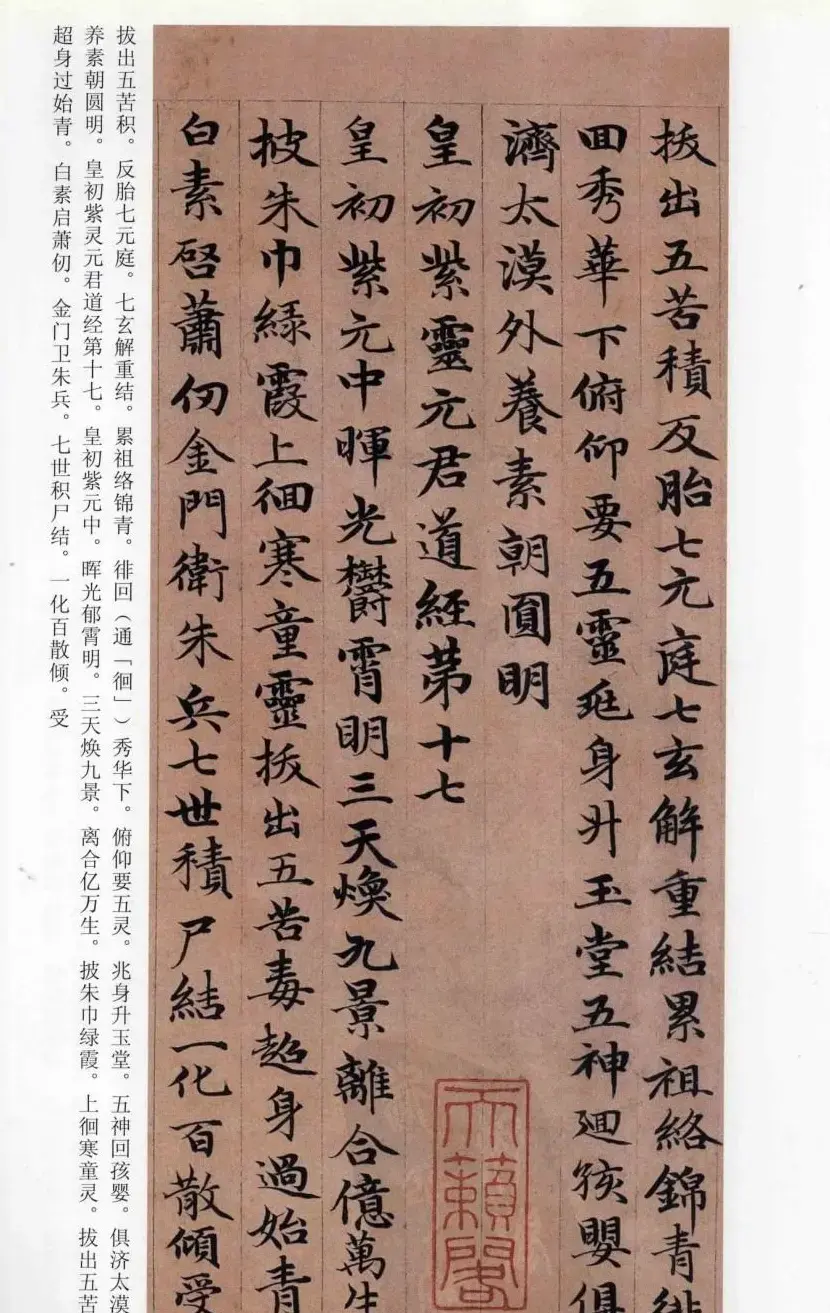 拔出五苦積反胎七元庭七玄解重結累祖絡錦青徘
回秀華下俯仰要五靈兆身升玉堂五神迴孩嬰俱
濟太漠外養素朝圓明
皇初紫靈元君道經第十七
皇初紫元中暉光欝霄明三天煥九景離合億萬生
披朱巾綠霞上徊寒童靈拔出五苦毒超身過始青
白素啓蕭仞金門衛朱兵七世積尸結一化百散傾受
天籟閣
拔出五苦积。反胎七元庭。七玄解重结。累祖络锦青。徘回（通「徊」）秀华下。俯仰要五灵。兆身升玉堂。五神回孩婴。俱济太漠
养素朝圆明。皇初紫灵元君道经第十七。皇初紫元中。晖光郁霄明。三天焕九景。离合亿万生。披朱巾绿霞。上徊寒童灵。拔出五苦
超身过始青。白素启萧仞。金门卫朱兵。七世积尸结。一化百散倾。受